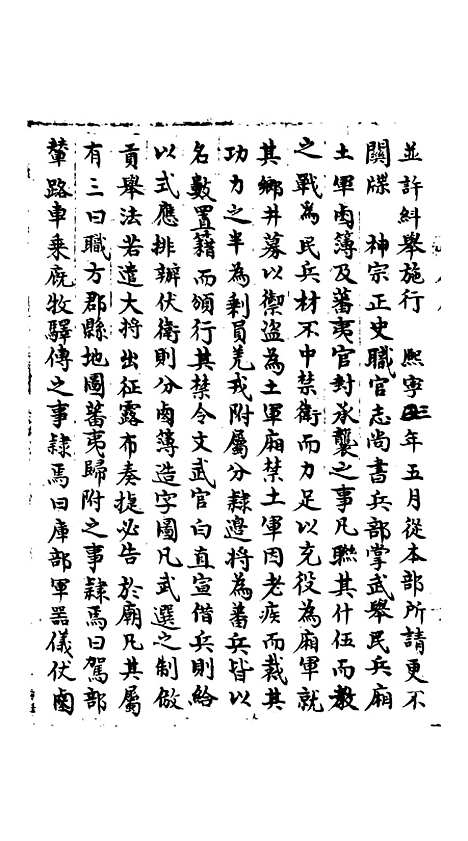 並許糾舉施行　熙寧四年五月從本部所請更不
關牒　神宗正史職官志尚書兵部掌武舉民兵廂
土軍鹵簿及蕃夷官封承襲之事凡聯其什伍而教
之戰為民兵材不中禁衛而力足以充役為廂軍就
其鄉井募以禦盜為土軍廂禁土軍因老疾而裁其
功力之半為剩員羌戎附屬分隸邊將為蕃兵皆以
名數置籍而頒行其禁令文武官白直宣借兵則給
以式應排辦仗衛則分鹵簿造字圖凡武選之制倣
貢舉法若遣大將出征露布奏捷必告於廟凡其屬
有三曰職方郡縣地圖蕃夷歸附之事隸焉曰駕部
輦路車乘廐牧驛傳之事隸焉曰庫部軍器儀仗鹵